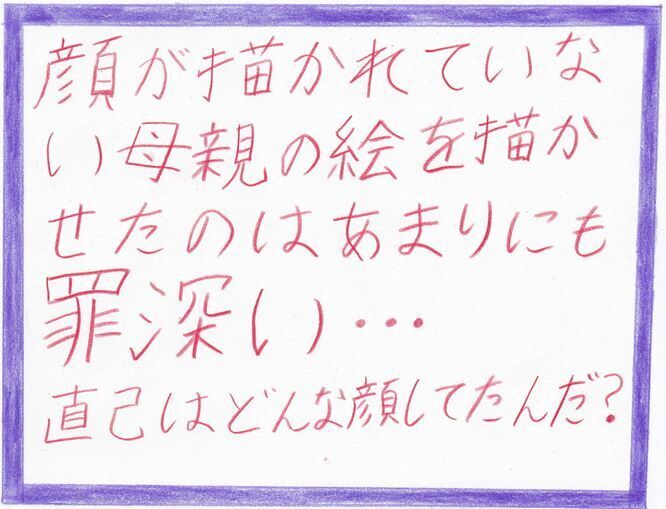 顔が描かれていな
い母親の絵を描か
せたのはあまりにも
罪深い…
直己はどんな顔してたんだ?